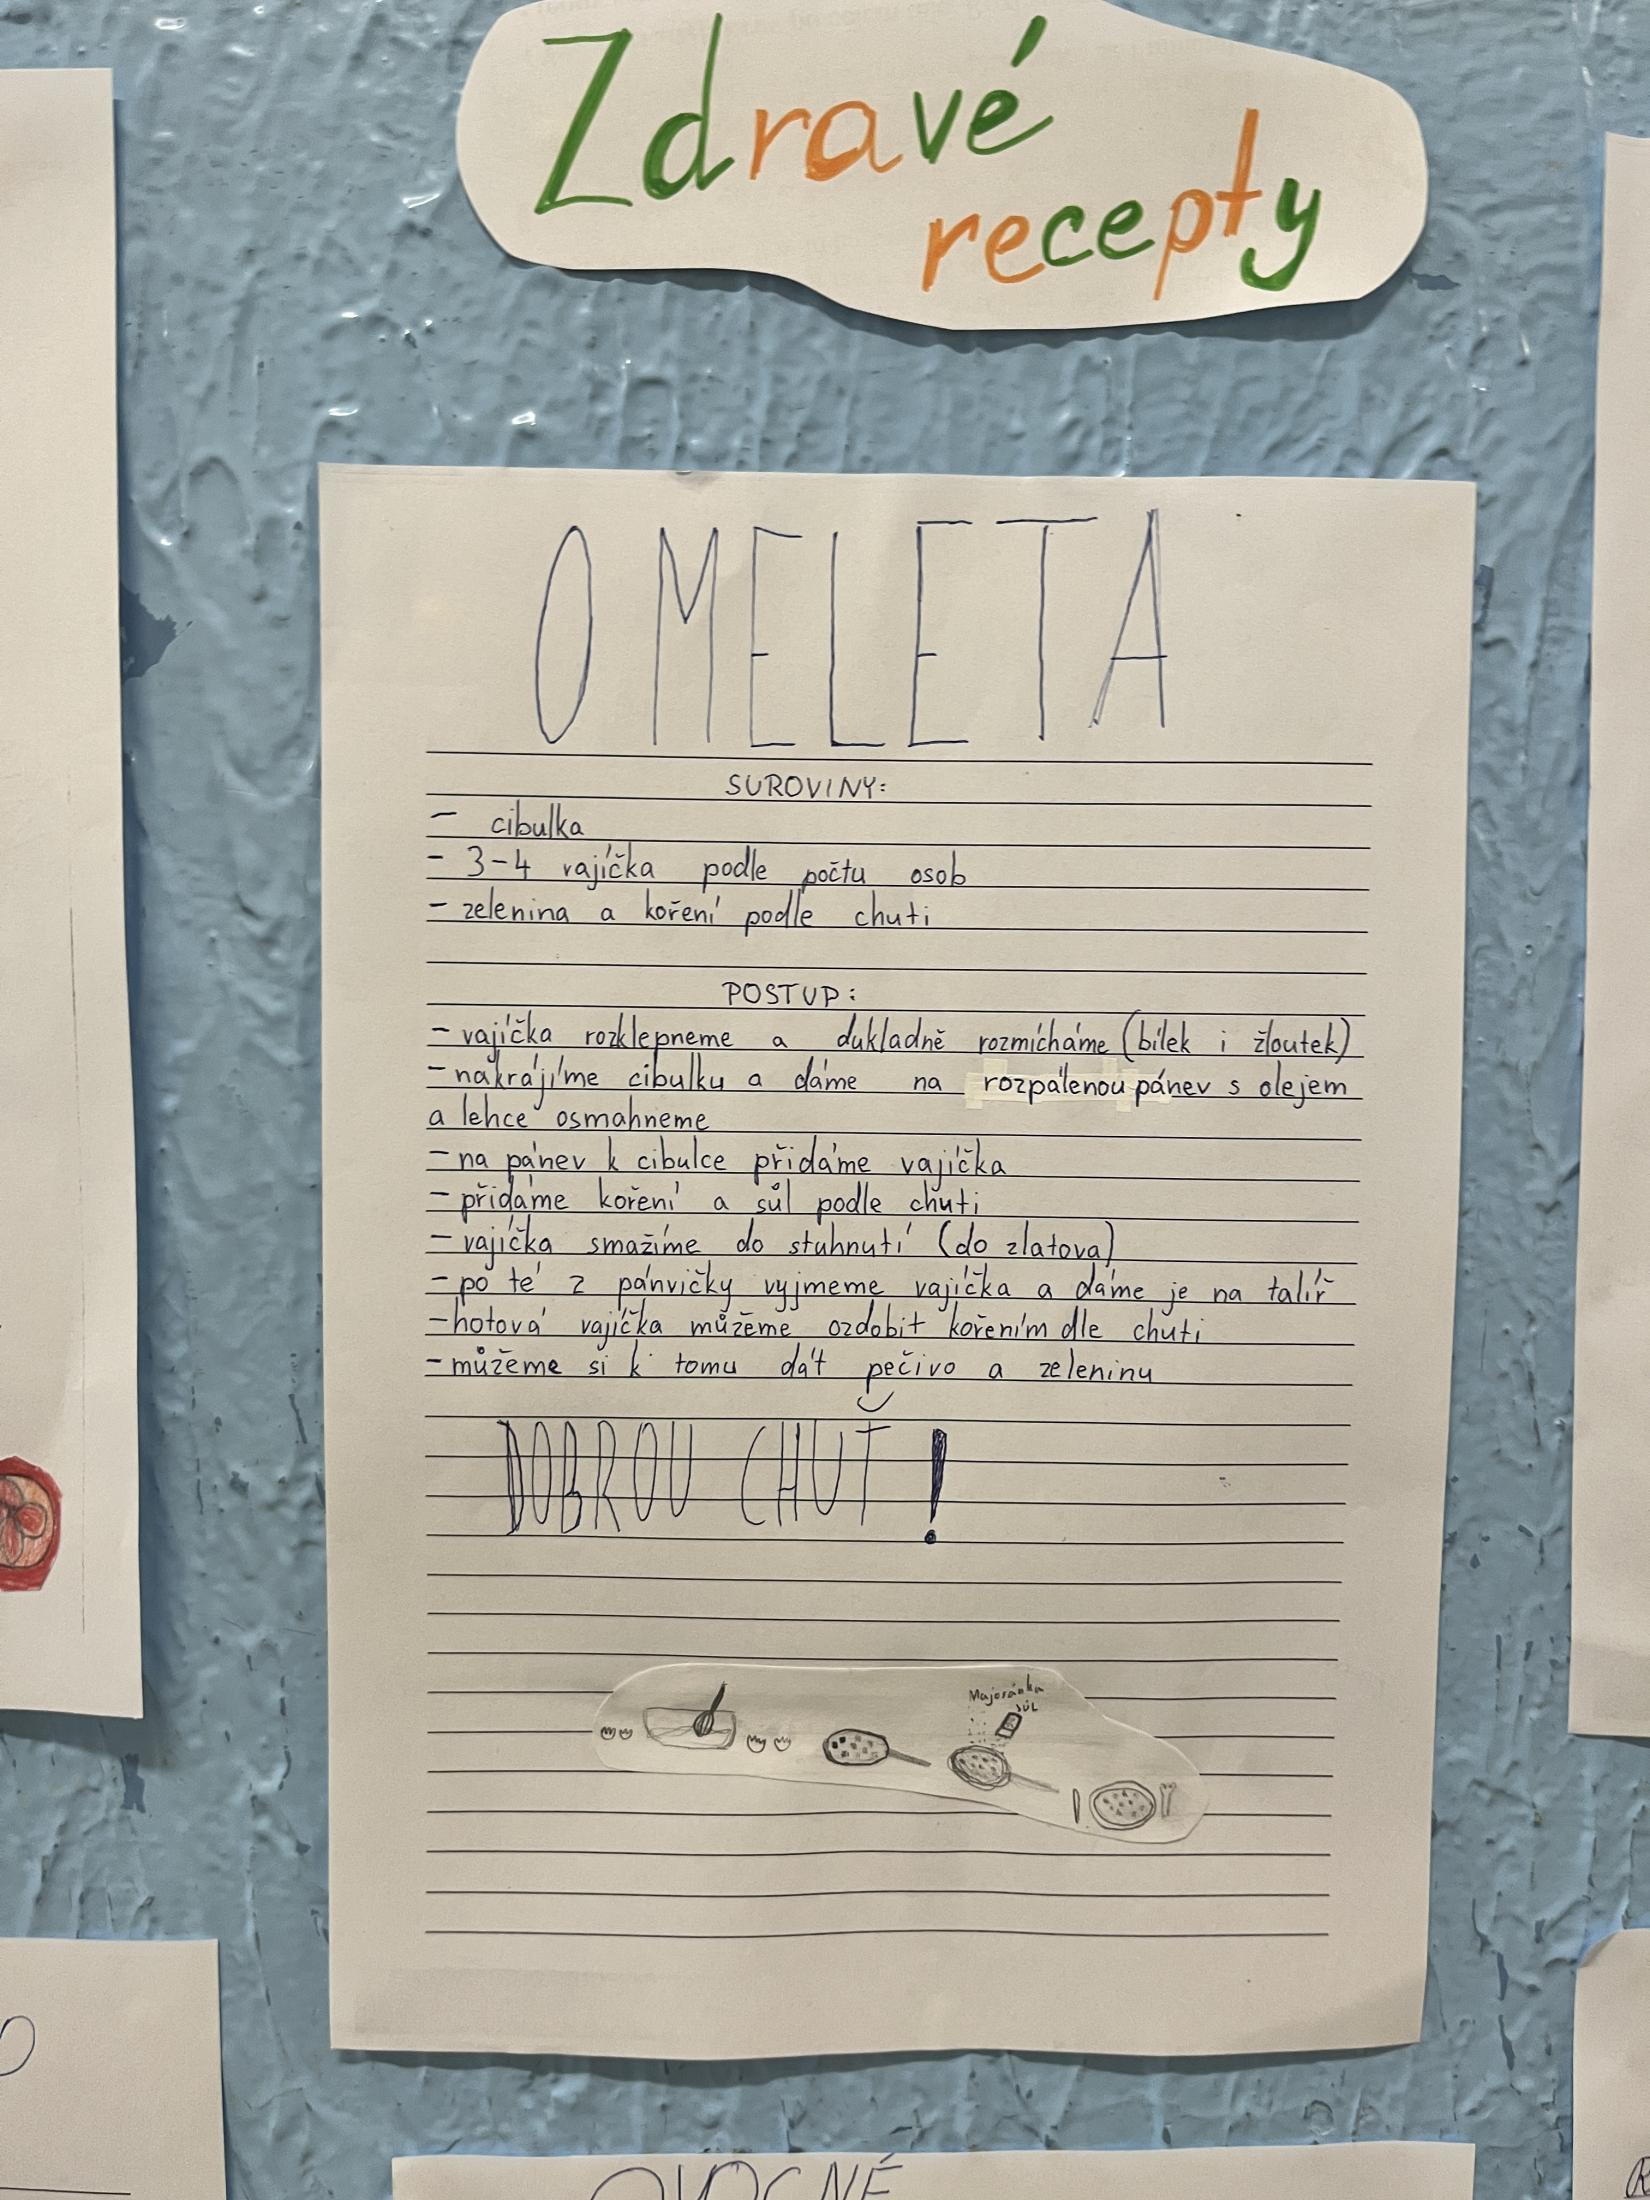 Zdravé
recepty
OMELETA
SUROVINY:
- cibulka
- 3-4 vajíčka podle počtu osob
- zelenina a koření podle chuti
POSTUP:
- vajíčka rozklepneme a dukladně rozmícháme (bílek i žloutek)
- nakrájíme cibulku a dáme na rozpálenou pánev s olejem
a lehce osmahneme
- na pánev k cibulce přidáme vajíčka
- přidáme koření a sůl podle chuti
- vajíčka smažíme do stuhnutí (do zlatova)
- po té z pánvičky vyjmeme vajíčka a dáme je na talíř
- hotová vajíčka můžeme ozdobit kořením dle chuti
- můžeme si k tomu dát pečivo a zeleninu
DOBROU CHUŤ!
Majoránka
SŮL
OVOCNÉ